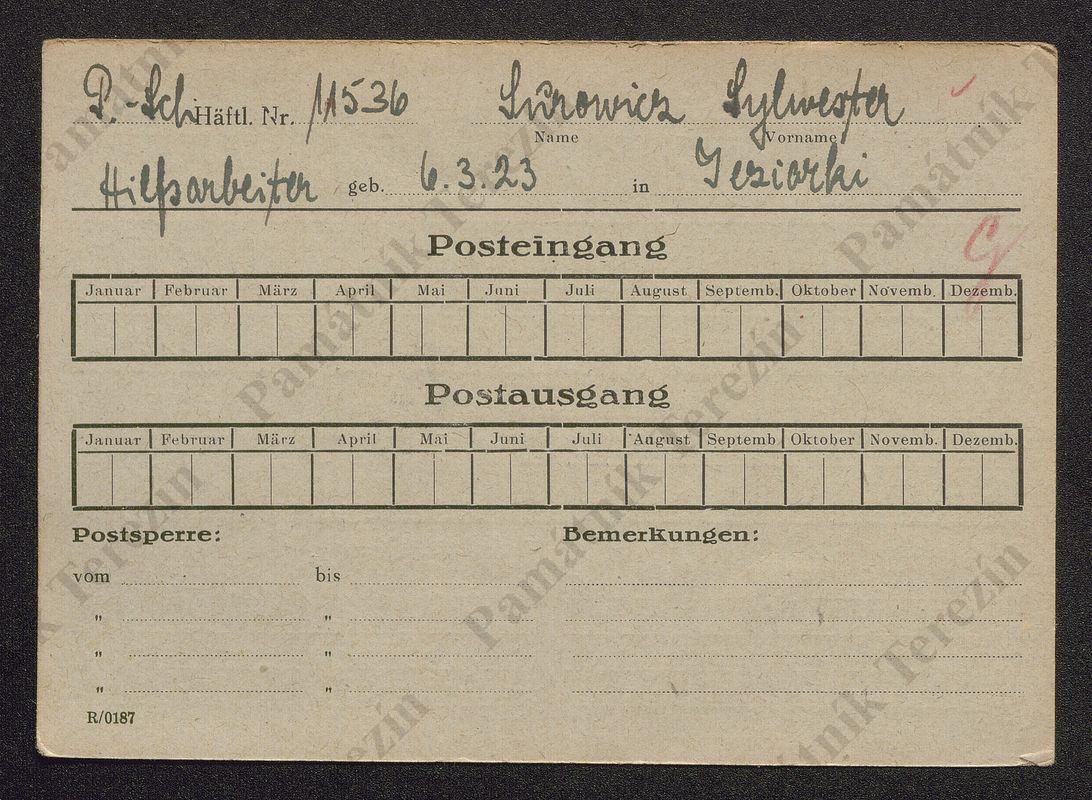 P.-Sch Häftl. Nr. 11536 Surowicz Sylwester
Name Vorname
Hilfsarbeiter geb. 6.3.23 in Jeziorki
Posteingang
Januar Februar März April Mai Juni Juli August Septemb. Oktober Novemb. Dezemb.
Postausgang
Januar Februar März April Mai Juni Juli August Septemb. Oktober Novemb. Dezemb.
Postsperre: Bemerkungen:
vom bis
" "
" "
" "
R/0187
Památník Terezín